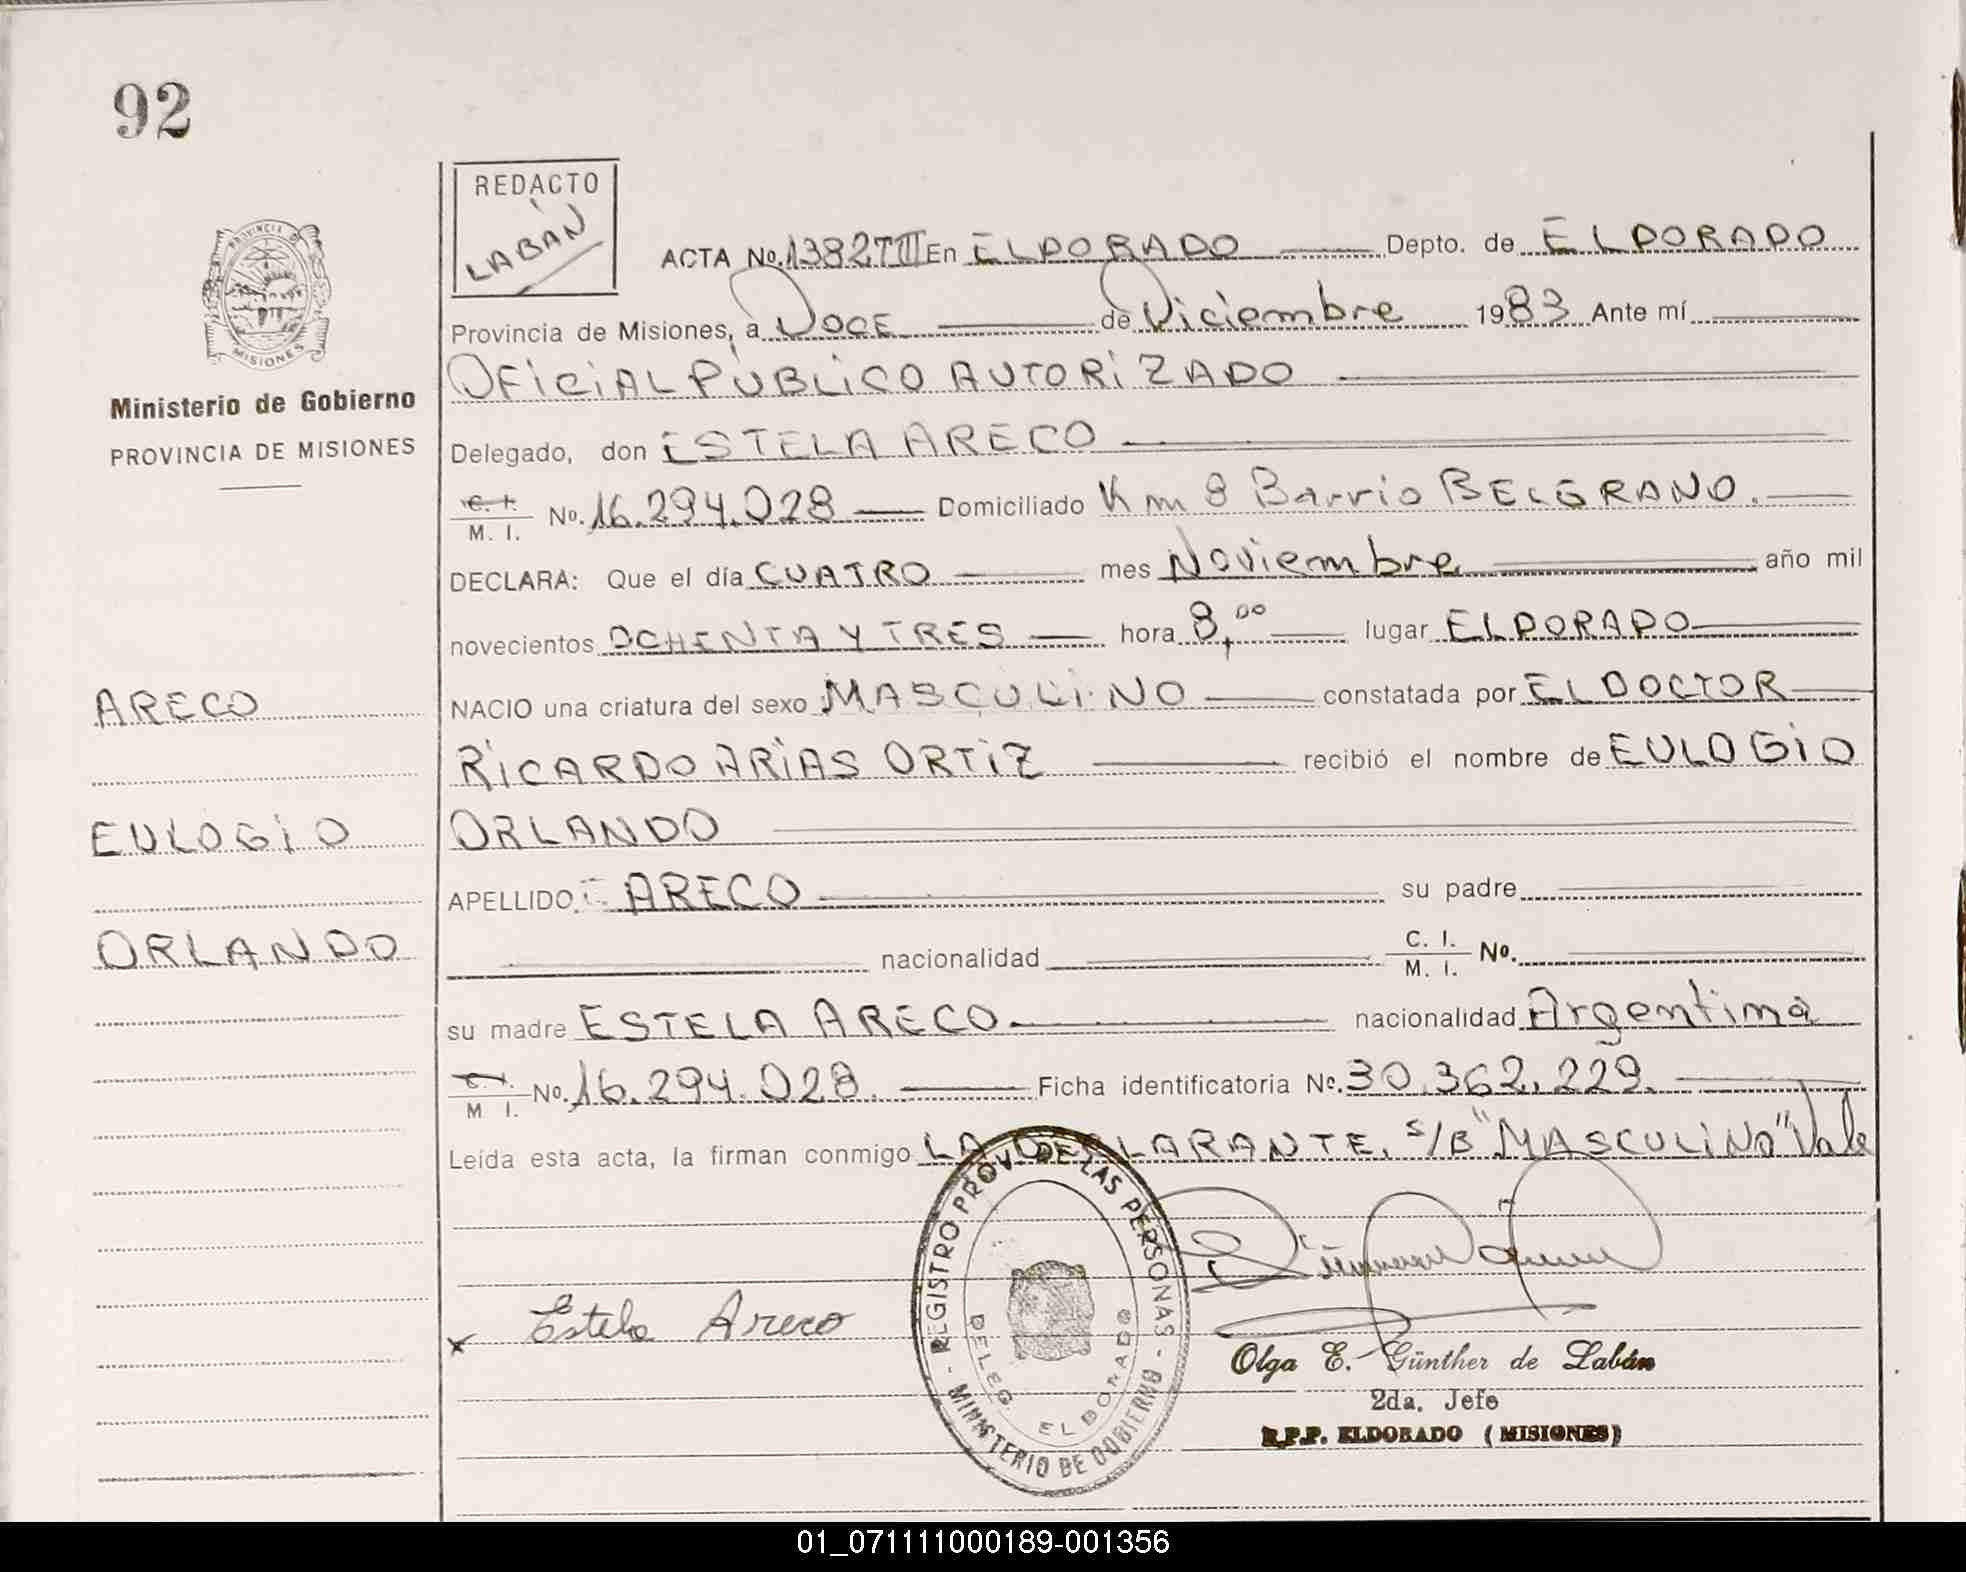 92
REDACTO
LABÁN
PROVINCIA DE
MISIONES
Ministerio de Gobierno
PROVINCIA DE MISIONES
ACTA No. 1382TIII En ELDORADO Depto. de ELDORADO
Provincia de Misiones, a DOCE de Diciembre 1983 Ante mí
OFICIAL PÚBLICO AUTORIZADO
Delegado, don ESTELA ARECO
C. I. / M. I. No. 16.294.028 Domiciliado Km 8 Barrio BELGRANO.
DECLARA: Que el día CUATRO mes Noviembre año mil
novecientos OCHENTA Y TRES hora 8,00 lugar ELDORADO
ARECO
NACIO una criatura del sexo MASCULINO constatada por EL DOCTOR
RICARDO ARIAS ORTIZ recibió el nombre de EULOGIO
EULOGIO
ORLANDO
APELLIDO: ARECO su padre
ORLANDO
nacionalidad C. I. / M. I. No.
su madre ESTELA ARECO. nacionalidad Argentina
C. I. / M I. No. 16.294.028. Ficha identificatoria No. 30.362.229.
Leída esta acta, la firman conmigo LA DECLARANTE. S/B "MASCULINO" Vale
Estela Areco
REGISTRO PROV. DE LAS PERSONAS - MINISTERIO DE GOBIERNO -
DELEG. ELDORADO
Olga E. Günther de Labán
2da. Jefe
R.P.P. ELDORADO (MISIONES)
01_071111000189-001356